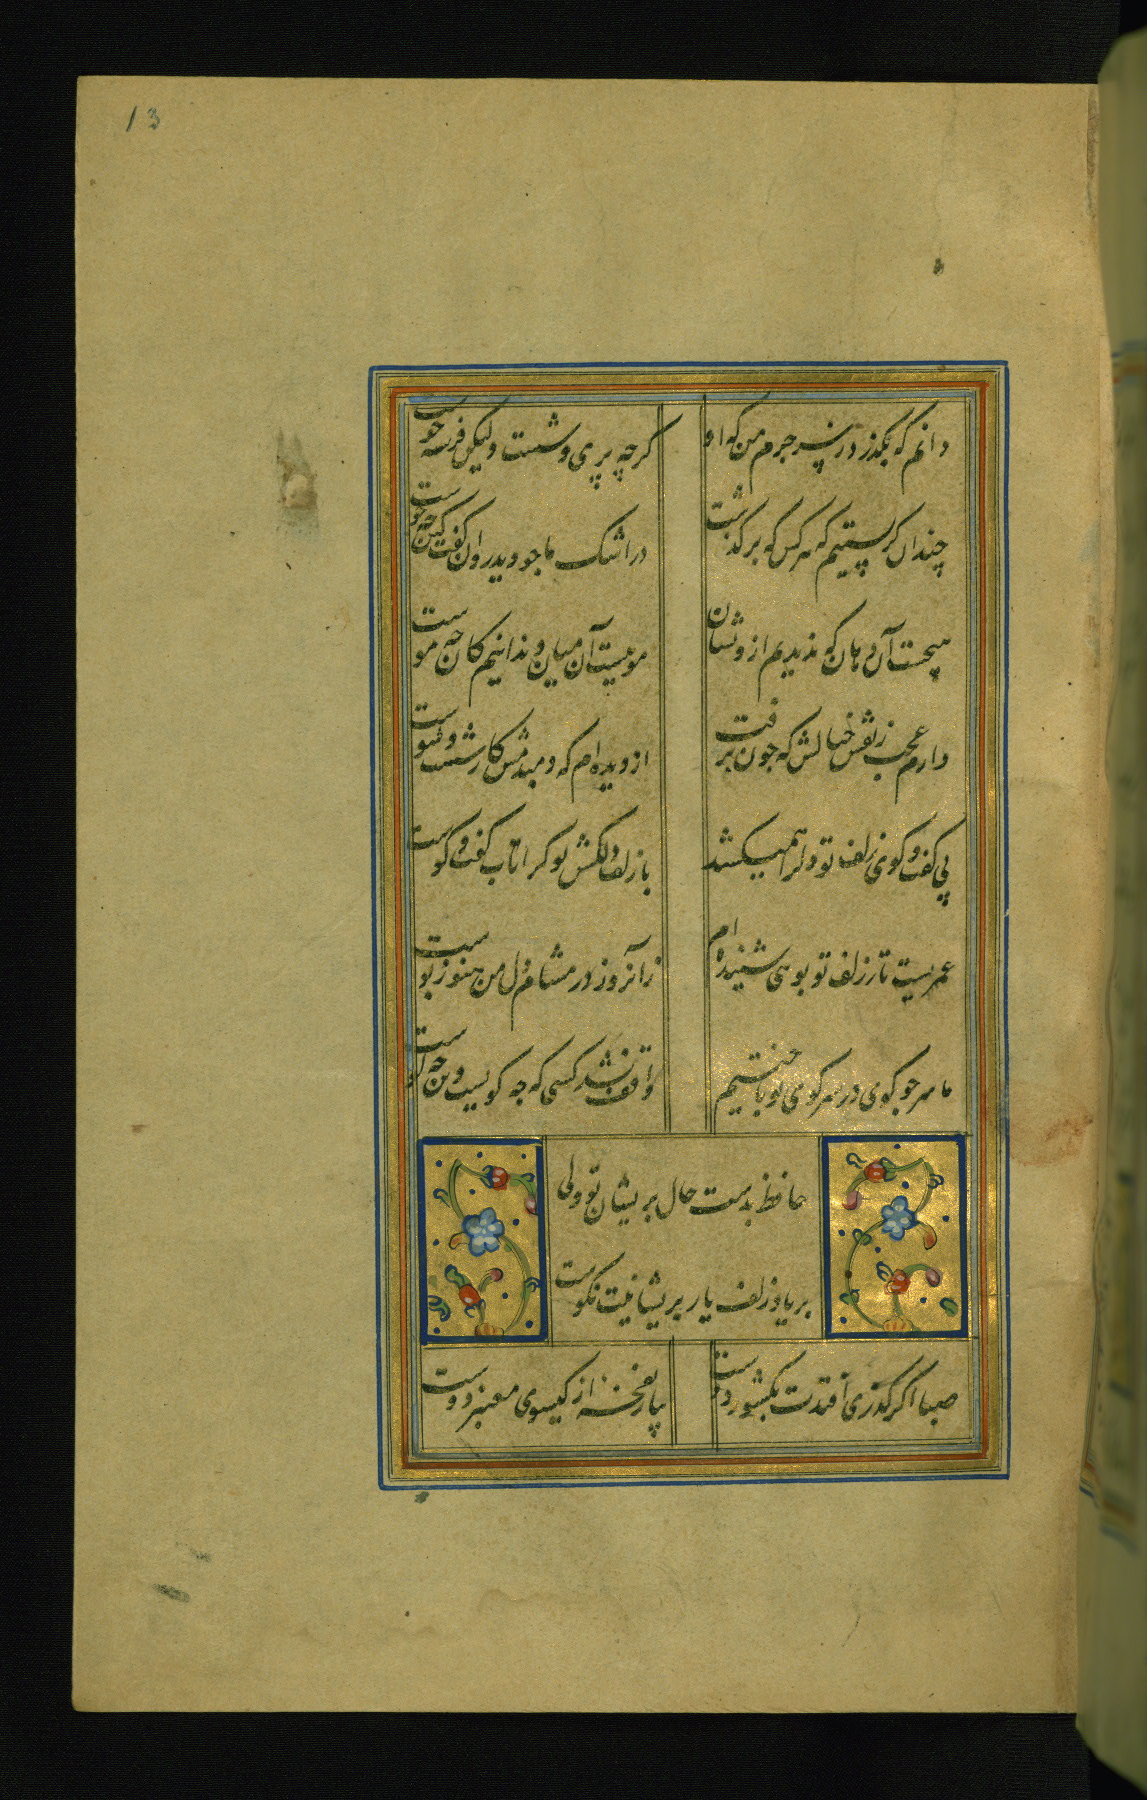 13
دانم که بگذرد ز سر جرم من که او
گرچه پری وشست ولیکن فرشته خوست
چندان گرستیم که هر کس که برگذشت
در اشک ما چو دید روان گفت کین چه جوست
هیچست آن دهان که ندیدیم ازو نشان
مویست آن میان و ندانیم کان چه موست
دارم عجب ز نقش خیالش که چون برفت
از دیده ام که دمبدمش کار شست و شوست
بی گفت و گوی زلف تو دل را همیکشد
با زلف دلکش تو کرا تاب گفت و گوست
عمریست تا ز زلف تو بوی شنیده ام
زان روز در مشام دل من هنوز بوست
ما سر چو گوی در سر کوی تو باختیم
واقف نشد کسی که چه کویست وین چه گوست
حافظ بدست حال پریشان تو ولی
بر یاد زلف یار پریشانیت نکوست
صبا اگر گذری افتدت بکشور دوست
بیار نفخه از گیسوی معنبر دوست